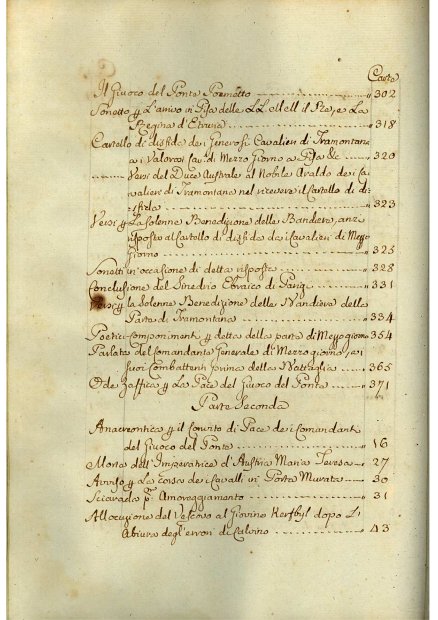 Carte
Il Giuoco del Ponte Poemetto ------------ " 302
Sonetto p L'arrivo in Pisa delle LL. MM il Re, e La
Regina d'Etruria ------------ " 318
Cartello di disfida dei Generosi Cavalieri di Tramontana
a i Valorosi di Mezzo Giorno a Pisa &c -- " 320
Versi del Duce Australe al Nobile Araldo dei Ca
valieri di Tramontana nel ricevere il Cartello di di-
sfida ------------ " 323
Versi p La Solenne Benedizione delle Bandiere, anzi
risposta al Cartello di disfida dei Cavalieri di Mezzo
Giorno ------------ " 325
Sonetti in occasione di detta risposta ------ " 328
Conclusione del Sinedrio Ebraico di Parigi ---- " 331
la Solenne Benedizione delle Bandiere della
Parte di Tramontana ------------ " 334
Poetici componimenti p detta della parte di Mezzogiorno " 354
Parlata del Comandante Generale di Mezzo giorno, ai
suoi Combattenti prima della Battaglia -- " 365
Ode Saffica p La Pace del Giuoco del Ponte ---- " 371
Parte Seconda
Anacreontica p il Convito di Pace dei Comandanti
del Giuoco del Ponte ------------ " 16
Morte dell'Imperatrice d'Austria Maria Teresa -- " 27
Avviso p La Corsa dei Cavalli in Porta Murata -- " 30
Sciarada Amoreggiamento ------------ " 31
Allocuzione del Vescovo al Giovine dopo L'
Abiura degl'errori di Calvino ------------ " 43